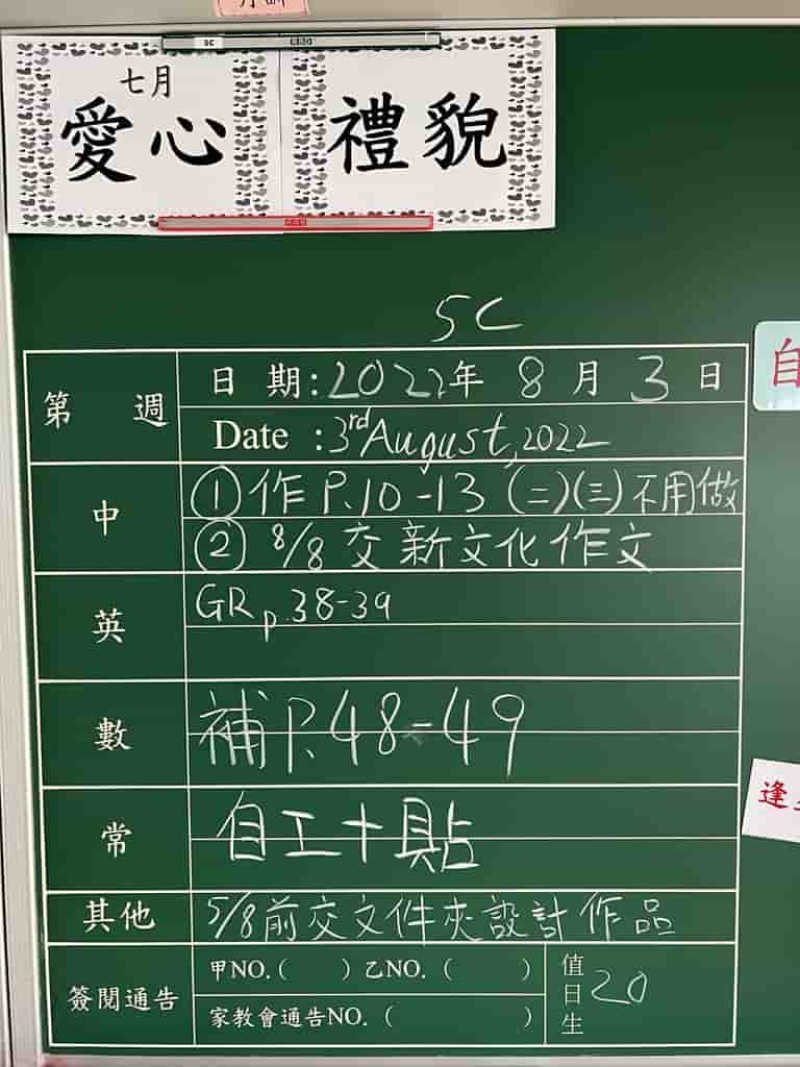 七月
愛心 禮貌
5C
第 週
日 期:2022年 8 月 3 日
Date :3rd August, 2022
中
①作 P.10-13 (二)(三)不用做
② 8/8 交新文化作文
英
GR p.38-39
數
補 P.48-49
常
自工十貼
其他
5/8前交文件夾設計作品
簽閱通告
甲NO.( )乙NO.( )
家教會通告NO.( )
值日生 20
自
逢